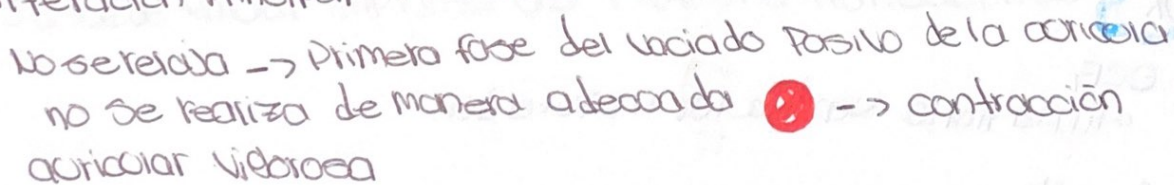 No se relaja -> Primera fase del vaciado pasivo de la auricula
no se realiza de manera adecuada -> contracción
auricular vigorosa